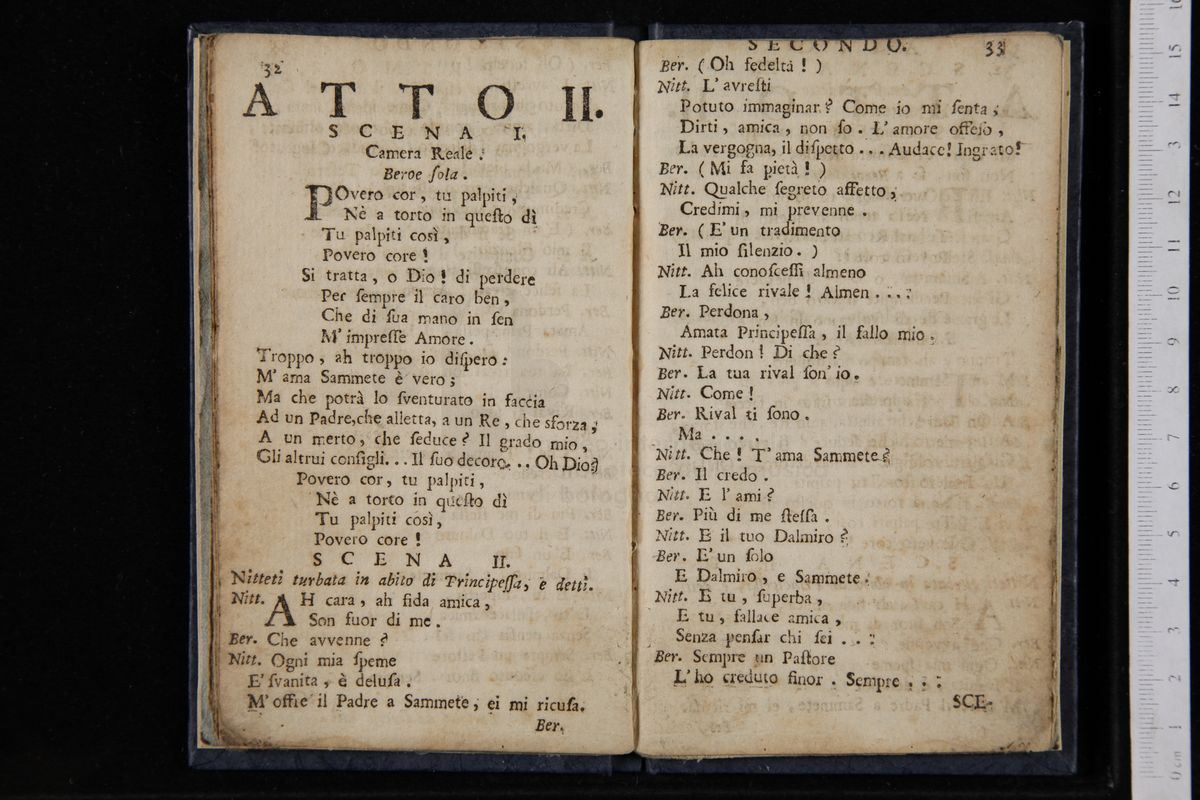 32
ATTO II.
SCENA I.
Camera Reale.
Beroe sola.
POvero cor, tu palpiti,
Nè a torto in questo dì
Tu palpiti così,
Povero core!
Si tratta, o Dio! di perdere
Per sempre il caro ben,
Che di sua mano in sen
M' impresse Amore.
Troppo, ah troppo io dispero:
M' ama Sammete è vero;
Ma che potrà lo sventurato in faccia
Ad un Padre, che alletta, a un Re, che sforza,
A un merto, che seduce? Il grado mio,
Gli altrui consigli... Il suo decoro... Oh Dio?
Povero cor, tu palpiti,
Nè a torto in questo dì
Tu palpiti così,
Povero core!
SCENA II.
Nitteti turbata in abito di Principessa, e detti.
Nitt. AH cara, ah fida amica,
Son fuor di me.
Ber. Che avvenne?
Nitt. Ogni mia speme
E' svanita, è delusa.
M' offre il Padre a Sammete, ei mi ricusa.
Ber.
SECONDO. 33
Ber. (Oh fedeltà!)
Nitt. L' avresti
Potuto immaginar? Come io mi senta;
Dirti, amica, non so. L' amore offeso,
La vergogna, il dispetto... Audace! Ingrato!
Ber. (Mi fa pietà!)
Nitt. Qualche segreto affetto,
Credimi, mi prevenne.
Ber. (E' un tradimento
Il mio silenzio.)
Nitt. Ah conoscessi almeno
La felice rivale! Almen...:
Ber. Perdona,
Amata Principessa, il fallo mio.
Nitt. Perdon! Di che?
Ber. La tua rival son' io.
Nitt. Come!
Ber. Rival ti sono.
Ma....
Nitt. Che! T' ama Sammete?
Ber. Il credo.
Nitt. E l' ami?
Ber. Più di me stessa.
Nitt. E il tuo Dalmiro?
Ber. E' un solo
E Dalmiro, e Sammete.
Nitt. E tu, superba,
E tu, fallace amica,
Senza pensar chi sei..:
Ber. Sempre un Pastore
L' ho creduto finor. Sempre..:
SCE-